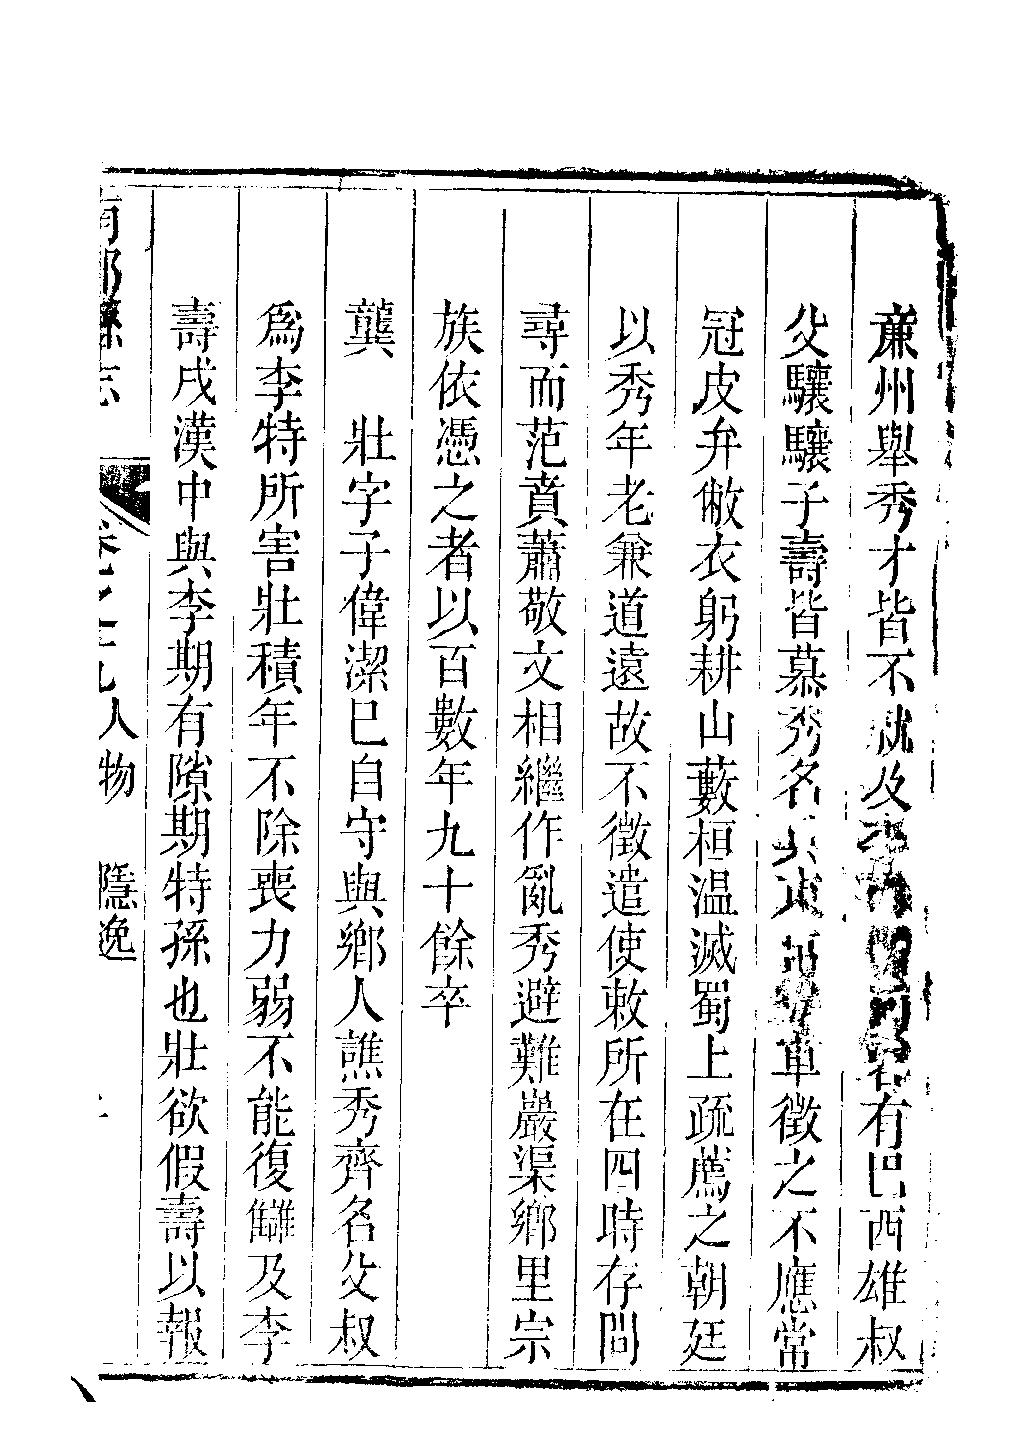 亷州舉秀才皆不就及李
有巴西雄叔
父驤驤子壽皆慕秀名
車徵之不應常
冠皮弁敝衣躬耕山藪桓温滅蜀上疏薦之朝廷
以秀年老兼道遠故不徵遣使敕所在四時存問
尋而范賁蕭敬文相繼作亂秀避難巖渠鄉里宗
族依憑之者以百數年九十餘卒
龔　壯字子偉潔巳自守與鄉人譙秀齊名父叔
爲李特所害壯積年不除喪力弱不能復讎及李
壽戍漢中與李期有隙期特孫也壯欲假壽以報
人物　隱逸